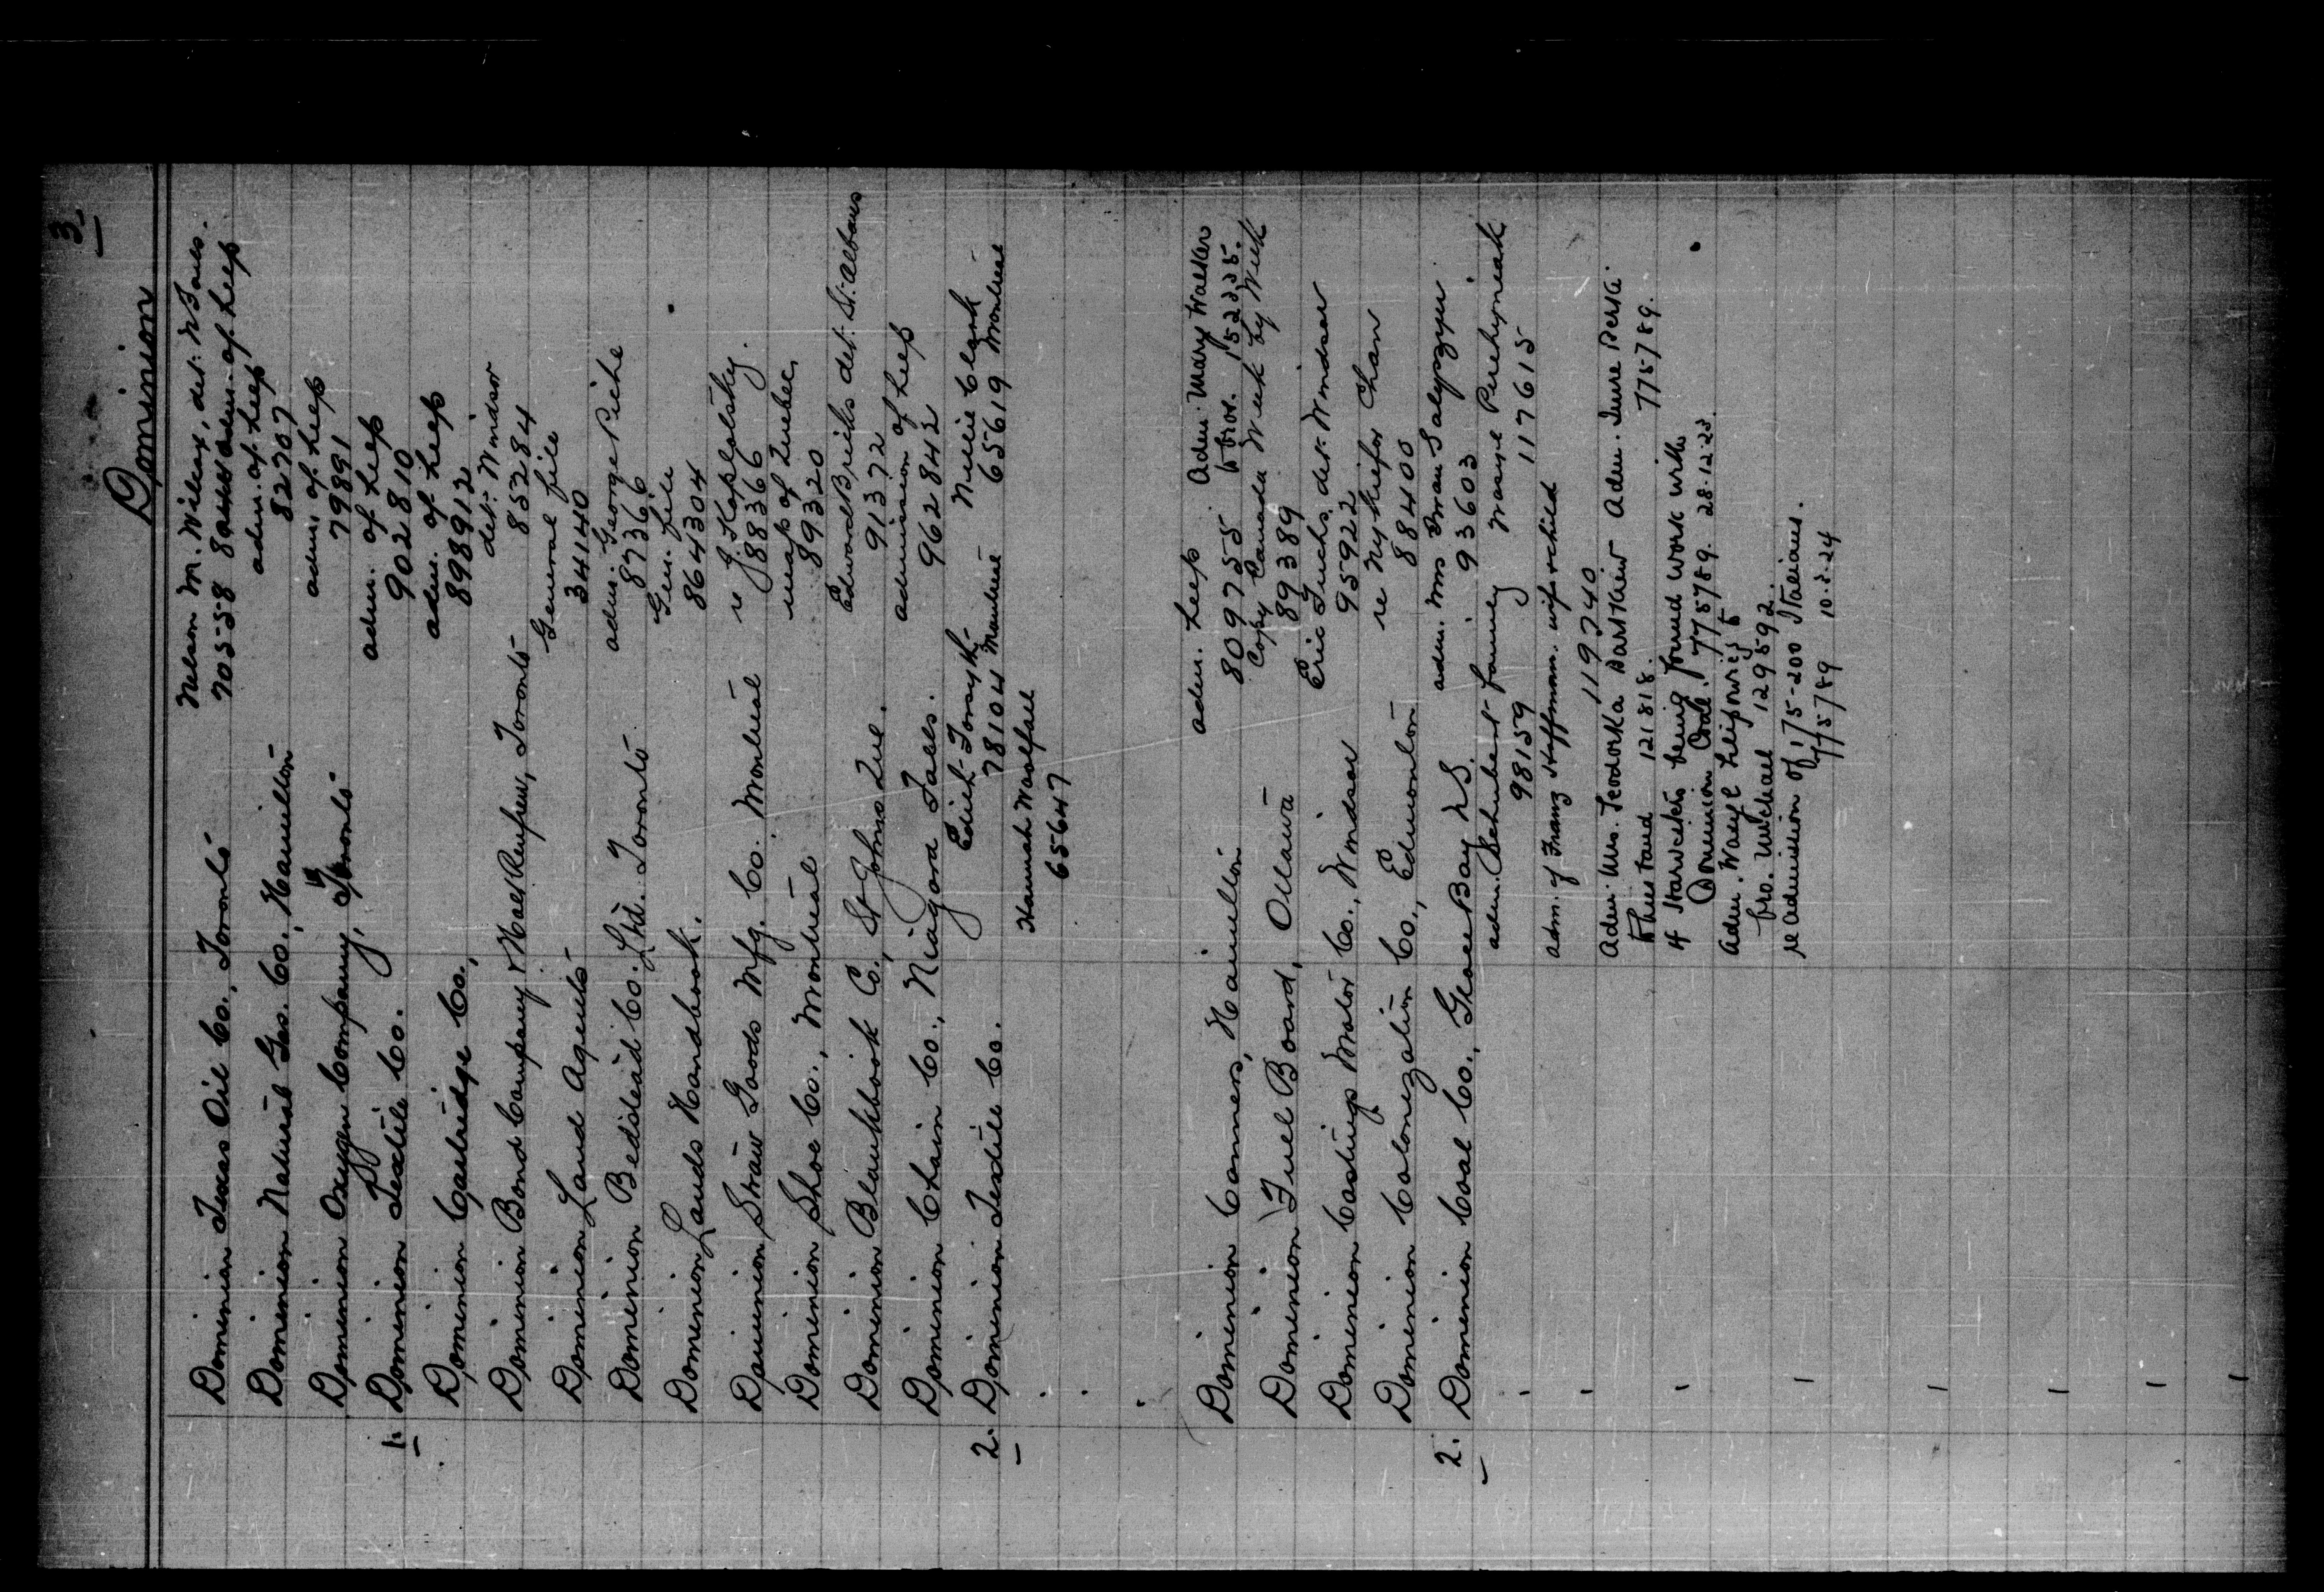 3
Dominion
Dominion Texas Oil Co., Toronto Nelson M. Wilcox, det: N Falls.
70558 adm. of help
Dominion Natural Gas. Co., Hamilton adm. of help
82707
Dominion Oxygen Company, Toronto adm. of help
79891
1. Dominion Textile Co. adm. of help
902810
Dominion Cartridge Co., adm. of help
898912
Dominion Bond Company Toronto det: Windsor
85284
Dominion Land Agents General file
34140
Dominion Bedstead Co. Ltd. Toronto adm: George Piche
87366
Dominion Lands Handbook. Gen. file
864304
Dominion Straw Goods Mfg. Co. Montreal re J. Kaplolsky.
88366
Dominion Shoe Co., Montreal map of Quebec
89320
Dominion Blankbook Co., St Johns Que. Edward Briks det: St. Albans
91372
Dominion Chain Co., Niagara Falls. admission of help
962842
2. Dominion Textile Co. Edith Forsyth Nellie Clark
78104 Montreal 65619 Montreal
Hannah Woolfall
65647
Dominion Canners, Hamilton adm. help Adm. Mary Walker
809755 152335.
Dominion Fuel Board, Ottawa Copy Canada Week by Week
89389
Dominion Castings Motor Co., Windsor Eric Fuchs. det: Windsor
95922
Dominion Colonization Co., Edmonton re Nykiefor Chan
88400
2. Dominion Coal Co., Glace Bay N.S. adm. Mrs Iwan Salyzyn
93603
adm. Schubert family Wasyl Perehyniak
98159 117615
adm. of Franz Hoffmann. wife & child
119740
Adm. Mrs. Teodorka Barthiw Adm. Jure Perta.
121818. 775789.
4 Starvekts being found work with
Dominion Coal. 775789. 28.12.23.
Adm. Wasyl
bro. Michael 129592.
re Admission of 175-200 Italians.
775789 10.2.24